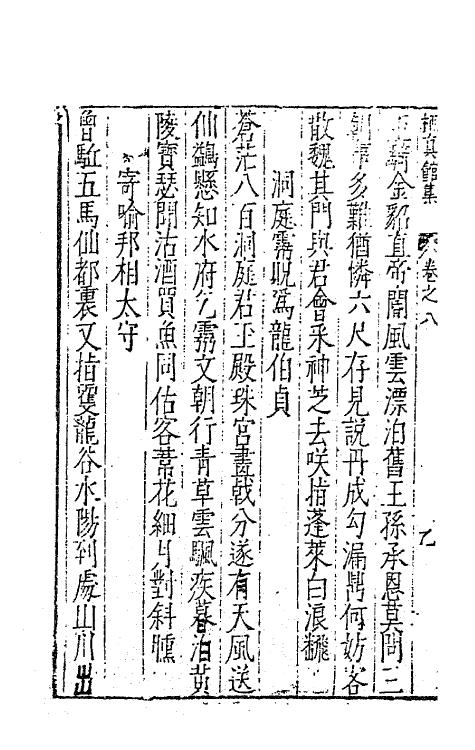 栖真館集 卷之八
騎金貂直帝閽風雲漂泊舊王孫承恩莫問三
朝事多難猶憐六尺存見說丹成勾漏鼎何妨客
散魏其門與君會采神芝去咲指蓬萊白浪飜
洞庭爲龍伯貞
蒼茫八百洞庭君玉殿珠宮畫戟分遂有天風送
仙飊懸知水府乞文朝行青草雲颿疾暮泊黃
陵寳瑟聞沽酒買魚同估客葦花細月對斜曛
寄喻邦相太守
曾駐五馬仙都裏又指雙龍谷水陽到處山川出